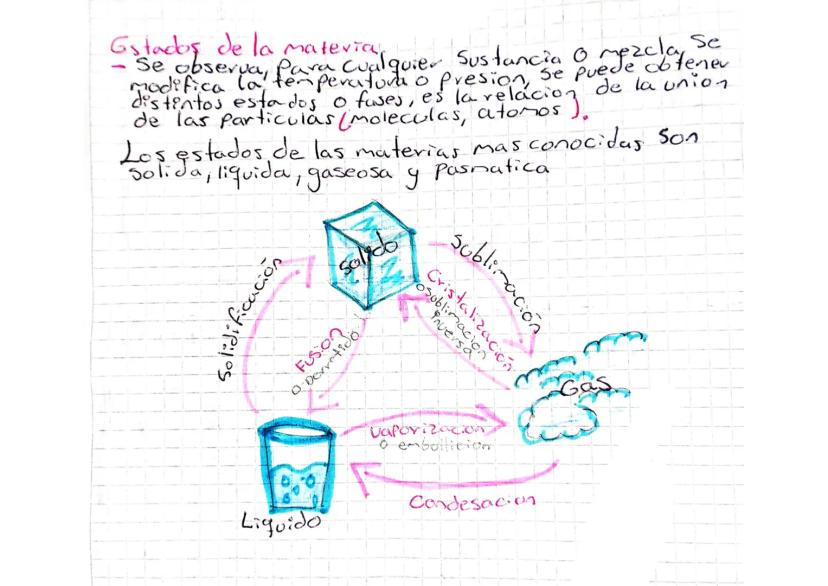 Estados de la materia
- Se observa, Para cualquier Sustancia O mezcla, Se
modifica la temperatura o presion, se puede obtener
distintos estados o fases, es la relacion de la union
de las particulas (moleculas, atomos).
Los estados de las materias mas conocidas son
solida, liquida, gaseosa y pasmatica
Solido
Sublimación
Solidificación
Cristalización
o sublimacion
inversa
Fusion
o Derratido
Gas
vaporizacion
o embollicion
Condesacion
Liquido